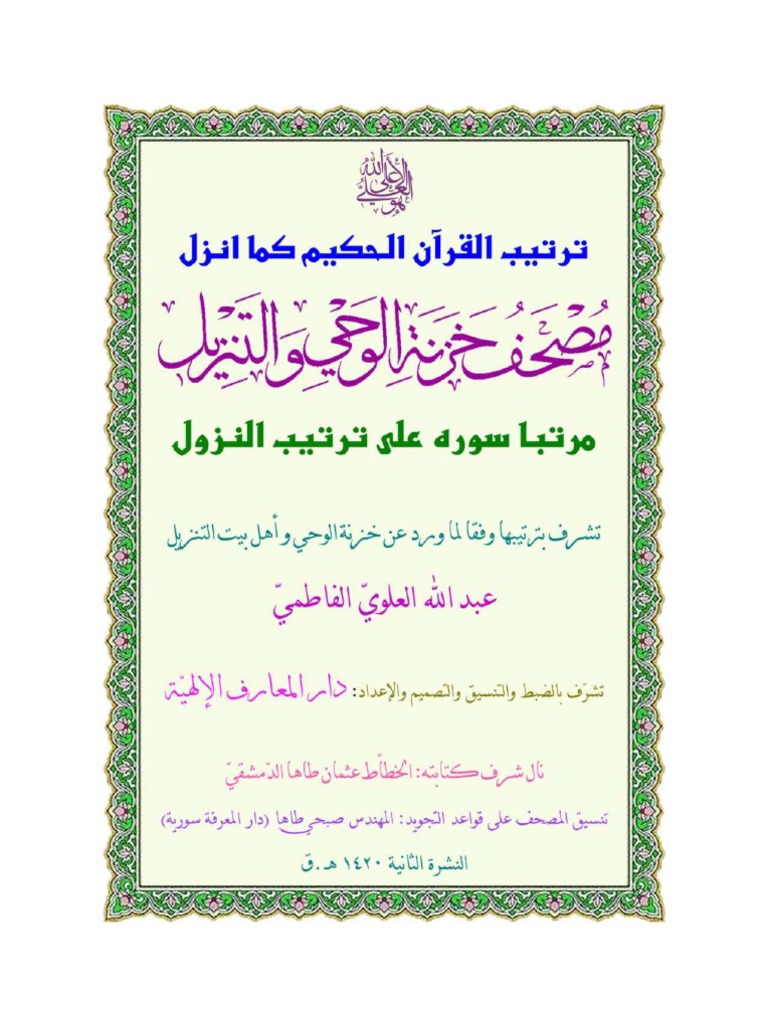 هو العلي الأعلى الله
ترتيب القرآن الحكيم كما انزل
مُصْحَفُ خَزَنَةِ الوَحْيِ وَالتَنْزِيلِ
مرتبا سوره على ترتيب النزول
تشرف بترتيبها وفقا لما ورد عن خزنة الوحي وأهل بيت التنزيل
عبد الله العلويّ الفاطميّ
تشرّف بالضبط والتنسيق والتصميم والإعداد: دار المعارف الإلهيّة
نال شرف كتابته: الخطاّط عثمان طاها الدّمشقيّ
تنسيق المصحف على قواعد التجويد: المهندس صبحي طاها (دار المعرفة سورية)
النشرة الثانية ١٤٢٠ هـ .ق